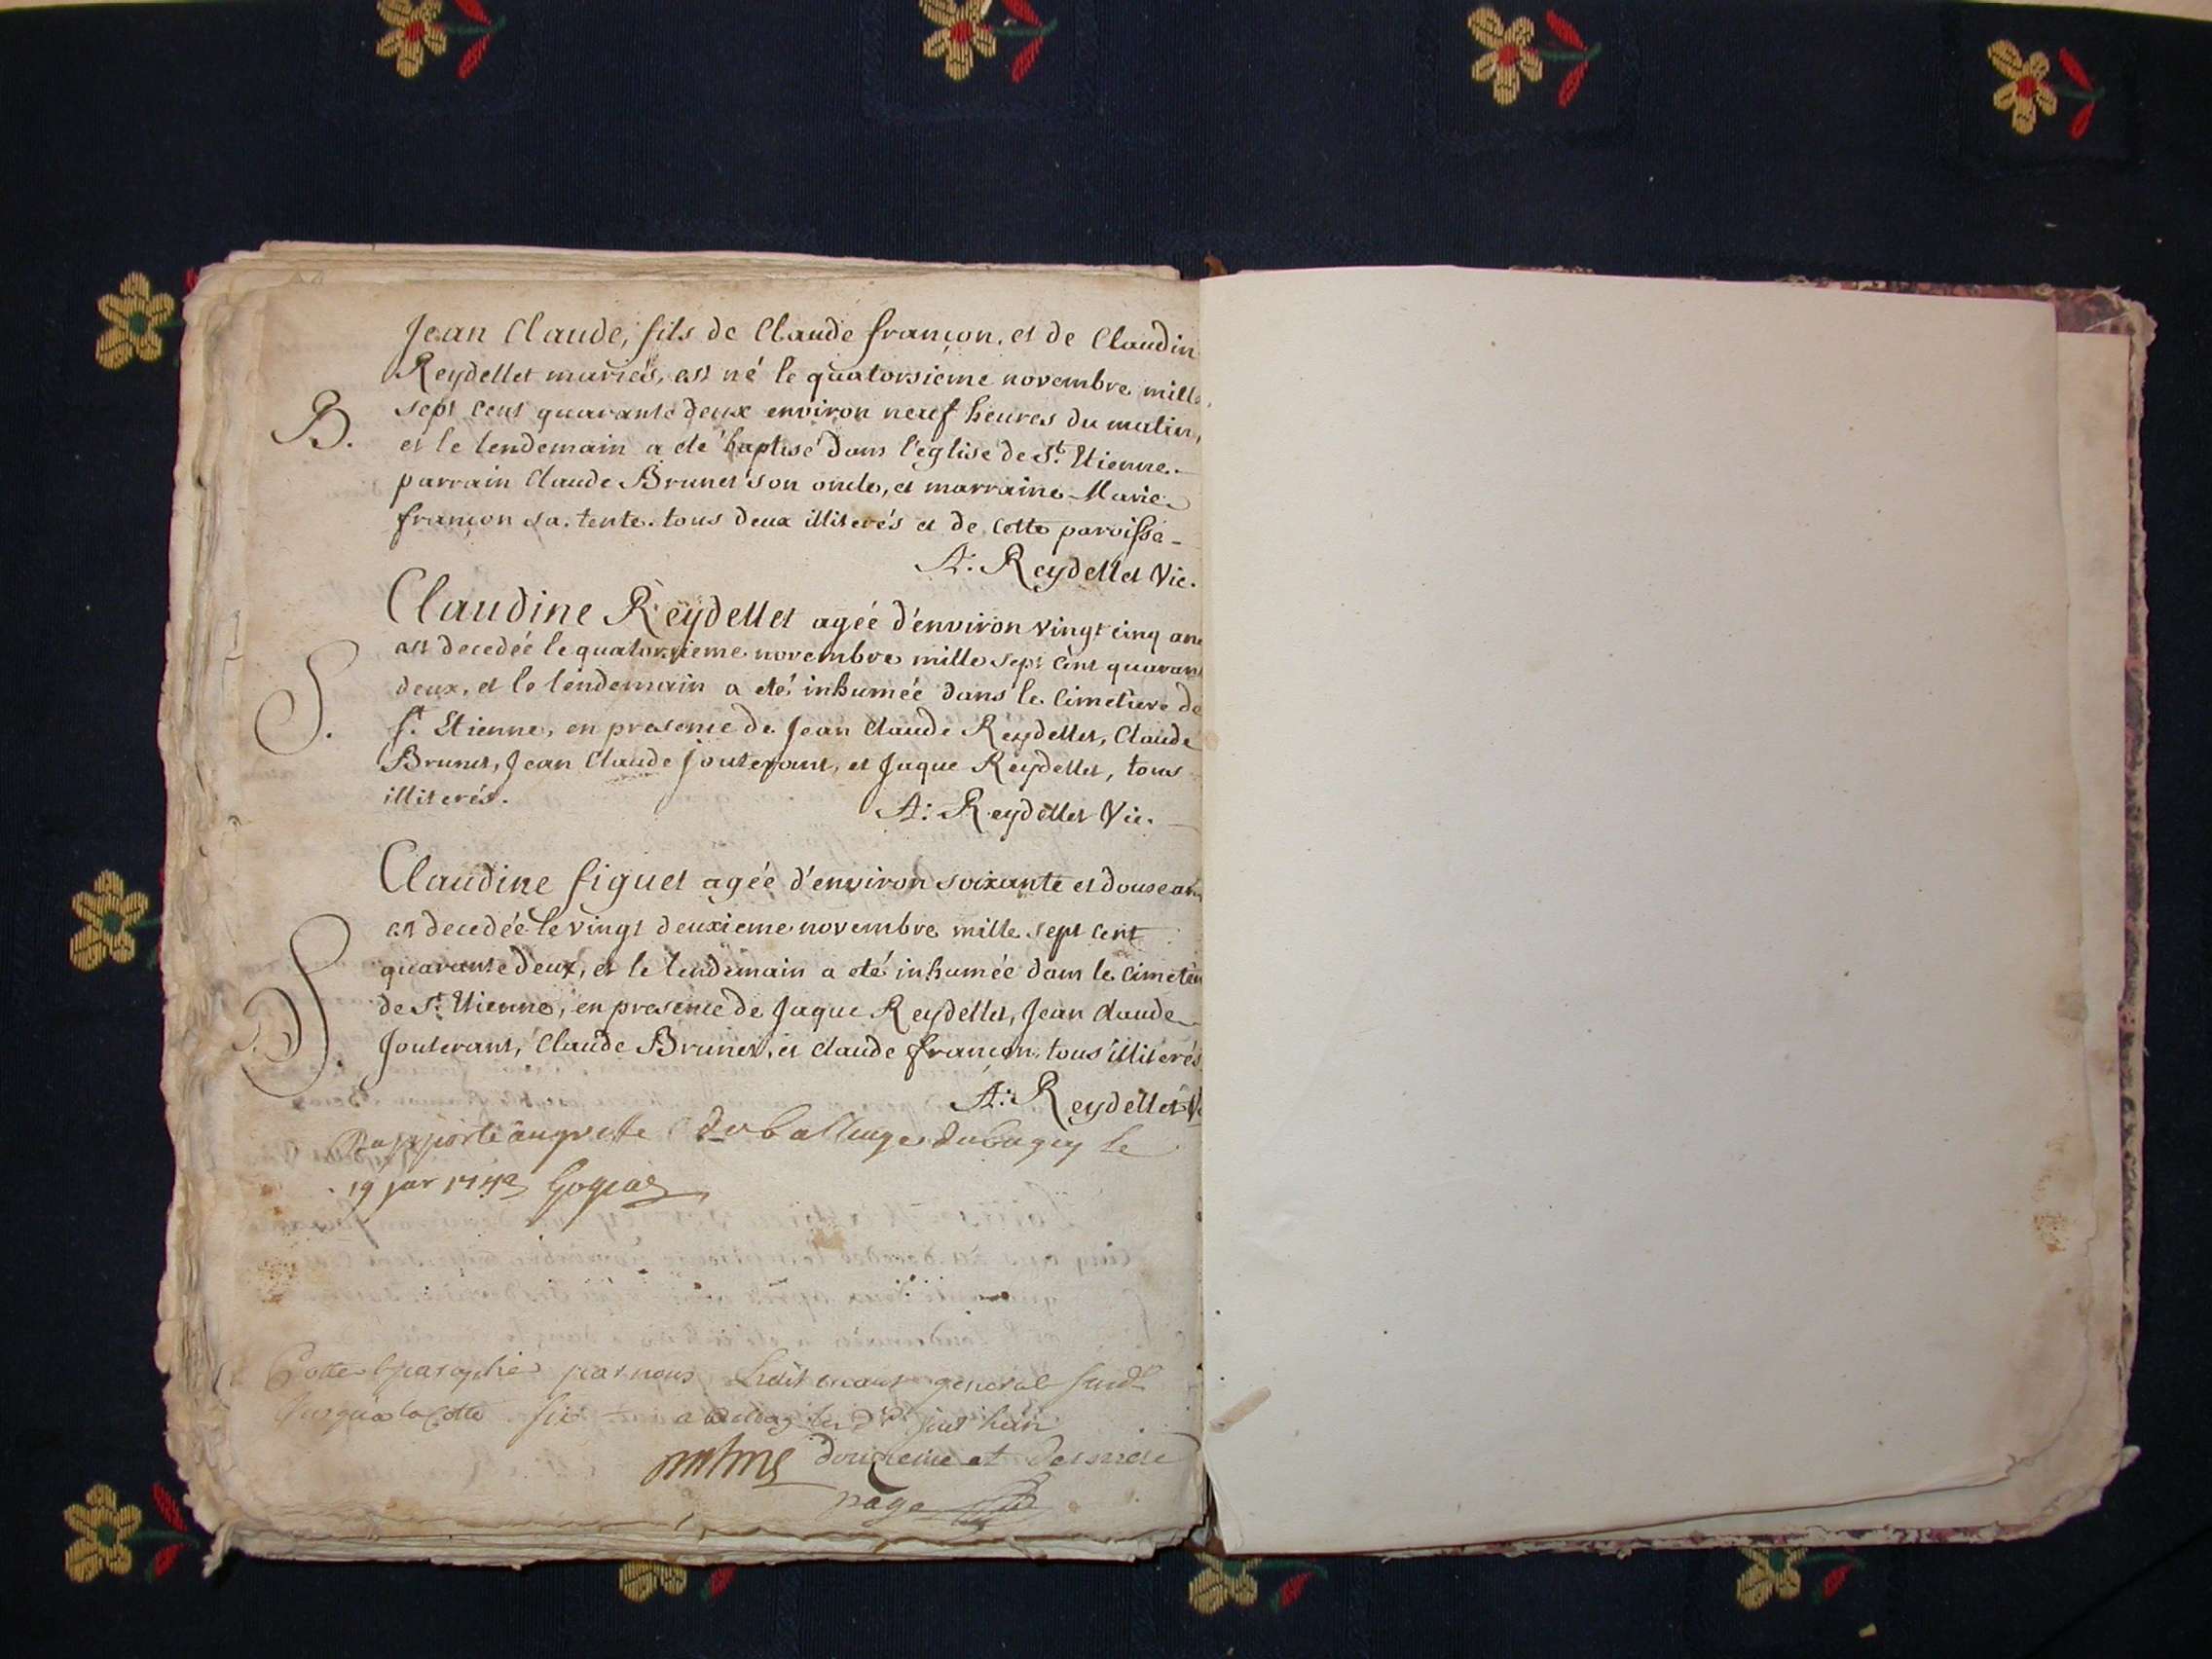 Jean Claude, fils de Claude françon, et de Claudin
Reydellet mariés, est né le quatorsieme novembre mille
B.
sept cent quarante deux environ neuf heures du matin,
et le lendemain a eté baptisé dans l'eglise de St. Etienne.
parrain Claude Brunet son oncle, et marraine Marie
françon sa tente. tous deux illiterés et de cette paroisse
A: Reydellet Vic.
Claudine Reydellet agée d'environ vingt cinq ans
est decedée le quatorzieme novembre mille sept cent quarant
deux, et le lendemain a eté inhumée dans le Cimetiere de
S.
St. Etienne, en presence de Jean Claude Reydellet, Claude
Brunet, Jean Claude Jouterant, et Jaque Reydellet, tous
illiterés.
A: Reydellet Vic.
Claudine figuet agée d'environ soixante et douse ans
est decedée le vingt deuxieme novembre mille sept cent
quarante deux, et le lendemain a eté inhumée dans le cimetier
de St. Etienne, en presence de Jaque Reydellet, Jean Claude
S.
Jouterant, Claude Brunet, et Claude françon, tous illiterés
A: Reydellet V
Rapporté au greffe du Balliage du bugey le
19
Cotté et paraphé par nous Lieutenant general
Jusqua la Cotte
douzieme et derniere
page